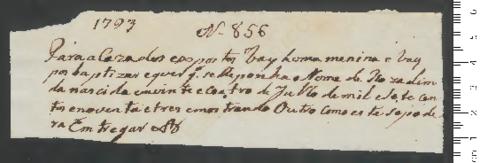 1793
N. 856
Para a Caza dos espostos Vay huma menina e Vay
por baptizar e quer q. se lhe ponha o Nome de Rozalin
da nascida em vinte e coatro de Julho de mil e Sete cen
tos enoventa e tres e mostrando Outro como este se pode
ra Emtregar